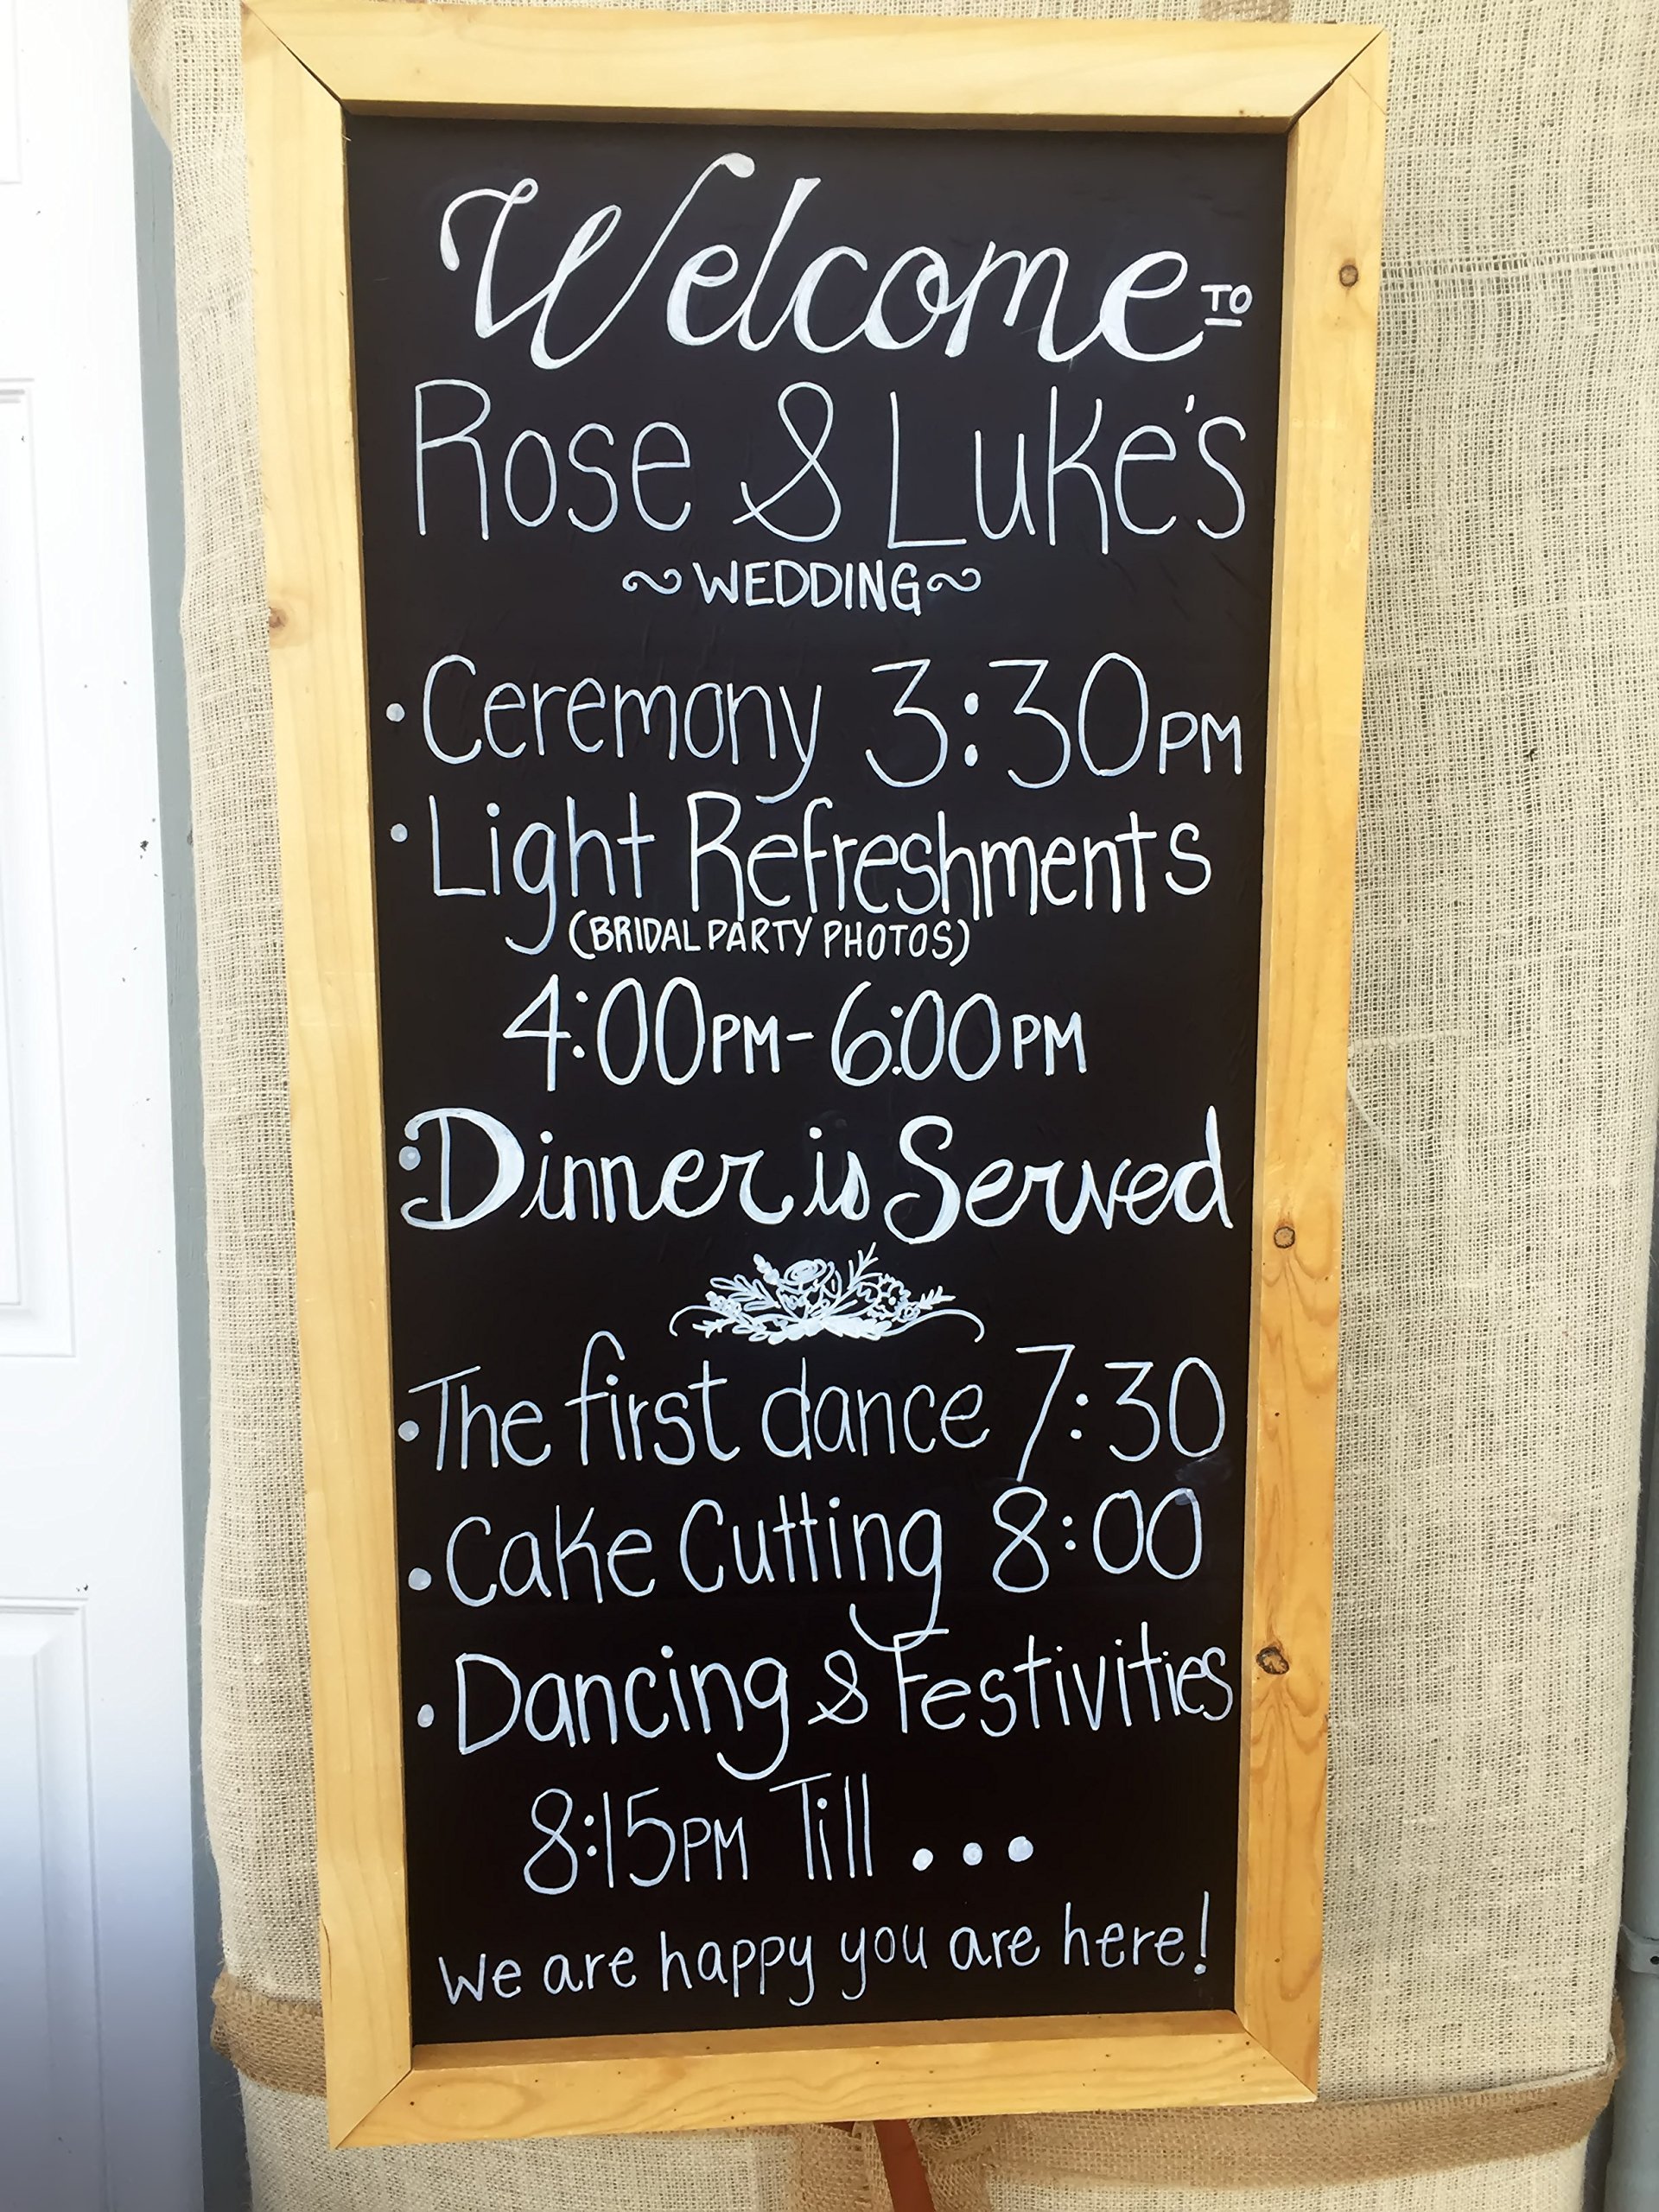 Welcome TO
Rose & Luke's
~ WEDDING ~
• Ceremony 3:30 PM
• Light Refreshments
(BRIDAL PARTY PHOTOS)
4:00 PM - 6:00 PM
• Dinner is Served
• The first dance 7:30
• Cake Cutting 8:00
• Dancing & Festivities
8:15 PM Till ...
We are happy you are here!